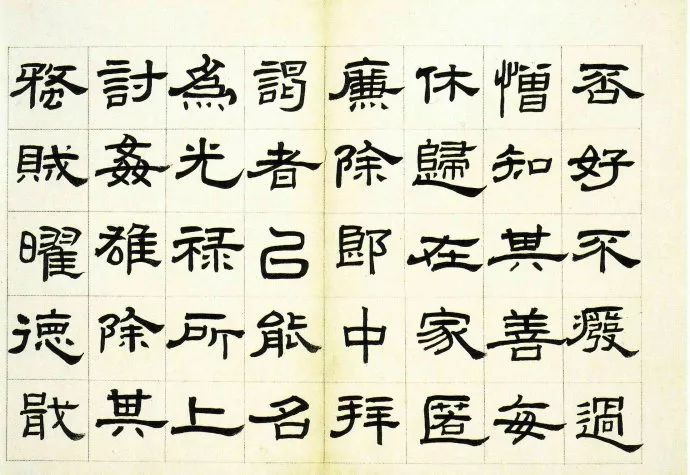 否好不癈過
憎知其善每
休歸在家匿
廉除郎中拜
謁者㠯能名
為光禄所上
討姦雄除其
蝥賊曜德戢